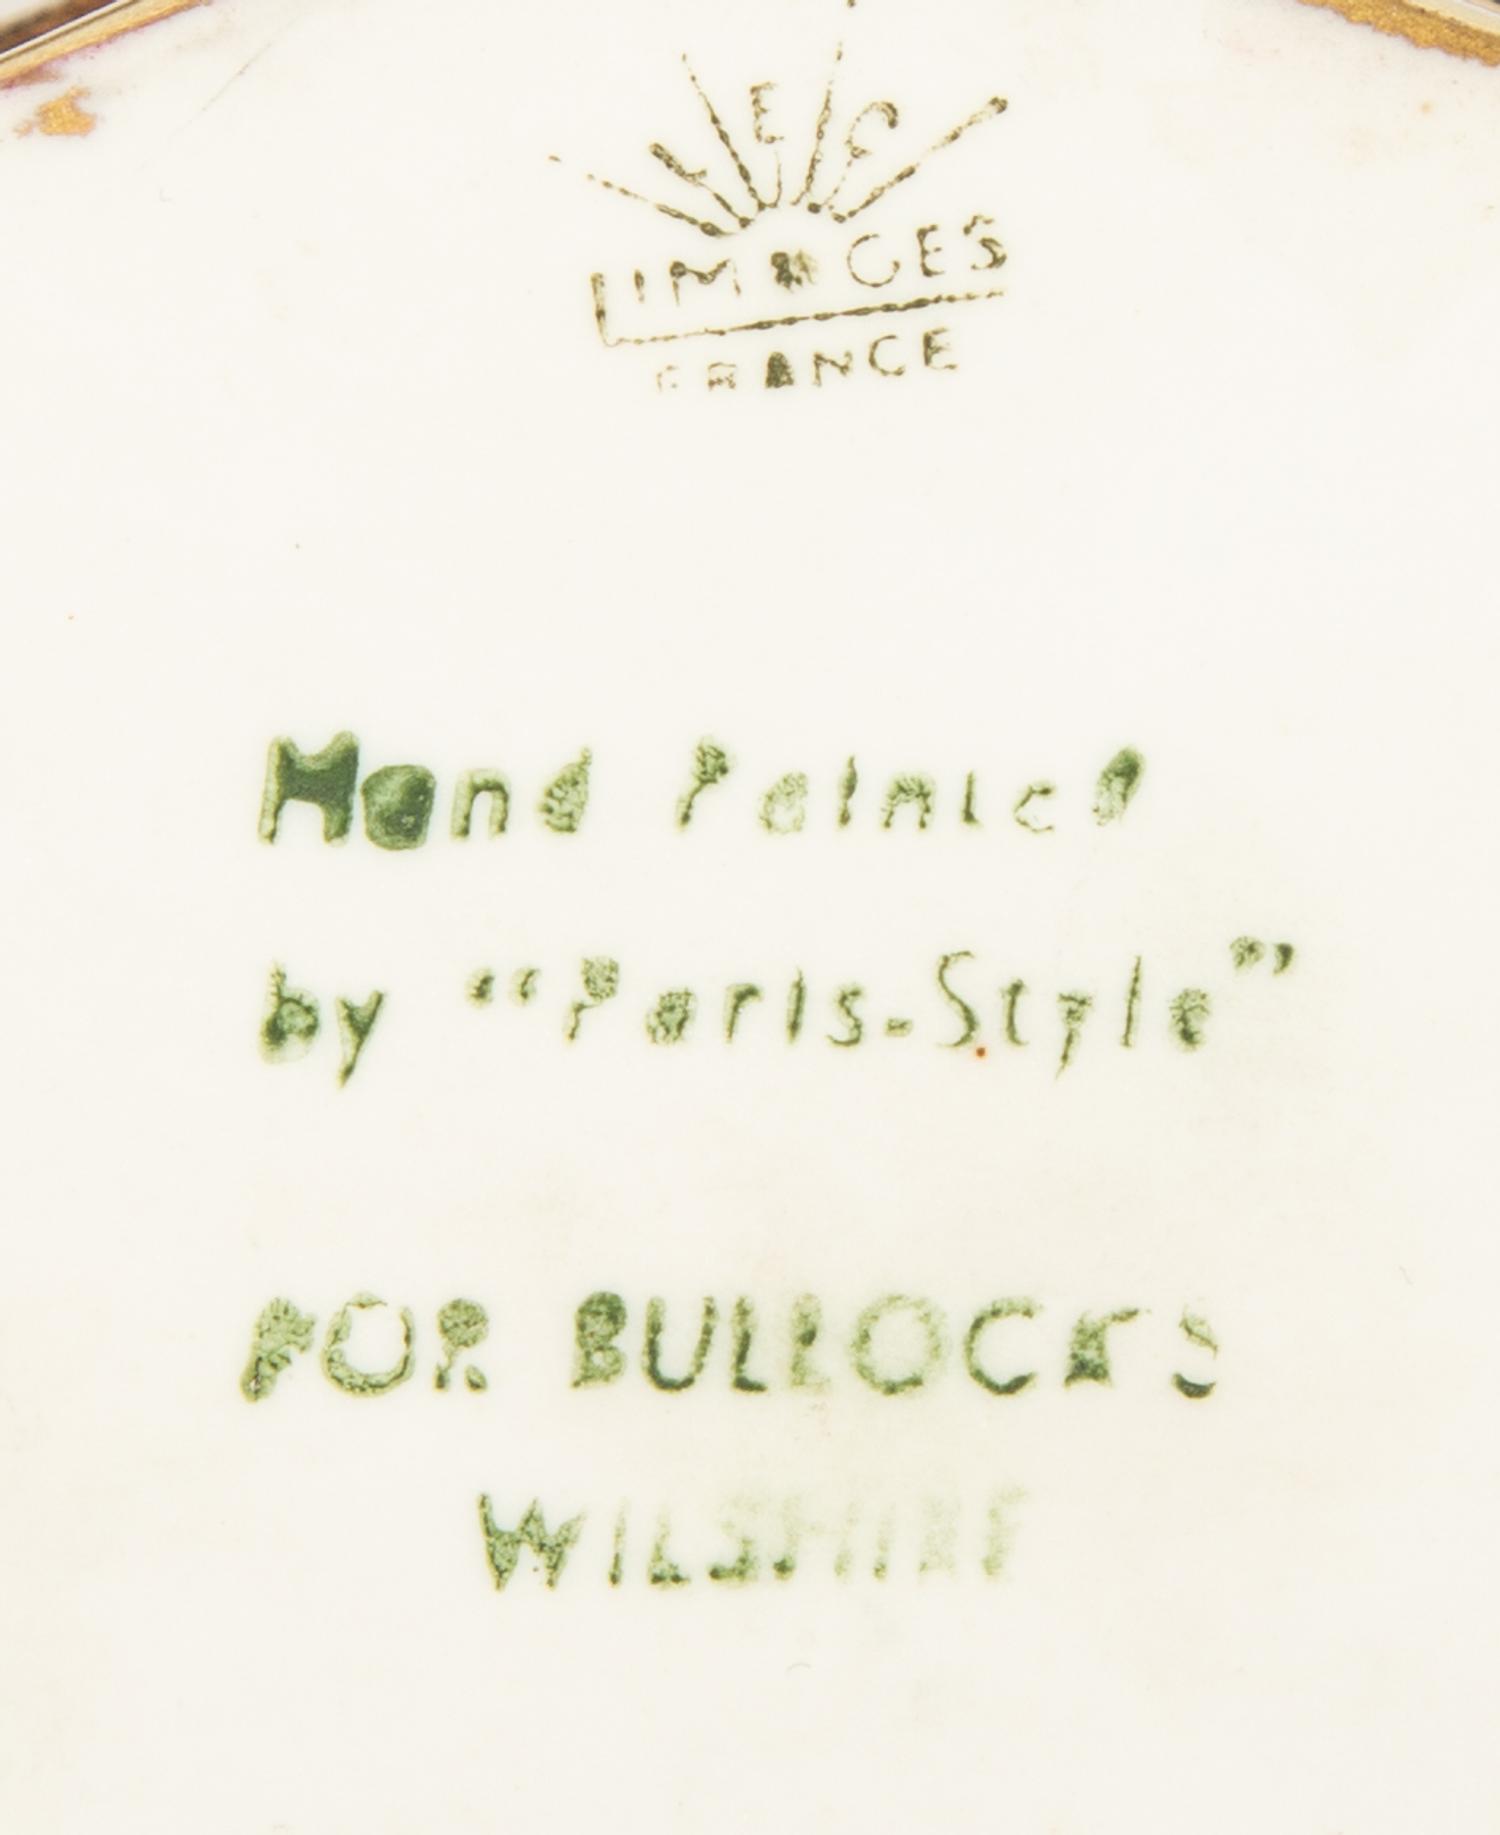 LEG
LIMOGES
FRANCE
Hand Painted
by “Paris-Style”
FOR BULLOCKS
WILSHIRE